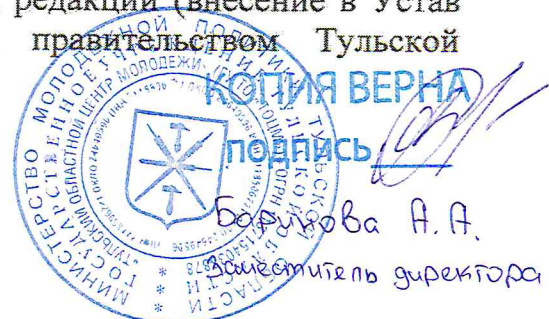 редакции (внесение в Устав
правительством Тульской
КОПИЯ ВЕРНА
ПОДПИСЬ
Баринова А. А.
Заместитель директора
МИНИСТЕРСТВО МОЛОДЕЖНОЙ ПОЛИТИКИ ТУЛЬСКОЙ ОБЛАСТИ
ГОСУДАРСТВЕННОЕ УЧРЕЖДЕНИЕ ТУЛЬСКОЙ ОБЛАСТИ
"ТУЛЬСКИЙ ОБЛАСТНОЙ ЦЕНТР МОЛОДЕЖИ"